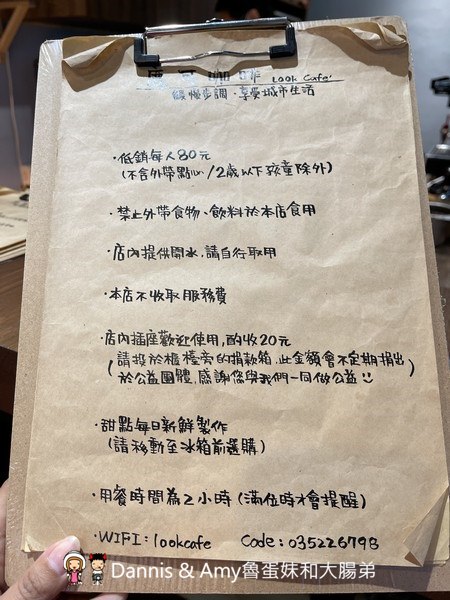 咖啡 Look Cafe'
緩慢步調·享受城市生活
·低銷每人80元
(不含外帶點心/2歲以下孩童除外)
·禁止外帶食物、飲料於本店食用
·店內提供開水,請自行取用
·本店不收取服務費
·店內插座歡迎使用,酌收20元
(請投於櫃檯旁的捐款箱,此金額會不定期捐出
於公益團體,感謝您與我們一同做公益)
·甜點每日新鮮製作
(請移動至冰箱前選購)
·用餐時間為2小時(滿位時才會提醒)
·WIFI:lookcafe Code:035226798
Dannis & Amy魯蛋妹和大腸弟